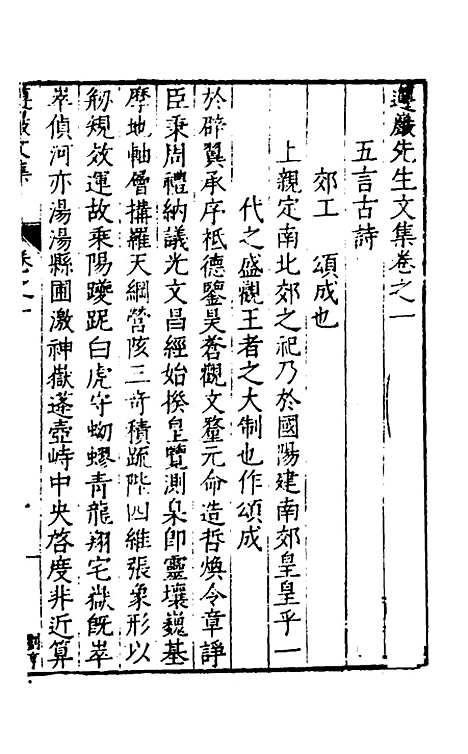 遵巖先生文集卷之一
五言古詩
郊工 頌成也
上親定南北郊之祀乃於國陽建南郊皇皇乎一
代之盛觀王者之大制也作頌成
於辟翼承序祗德鑒昊蒼觀文釐元命造哲煥令章諍
臣秉周禮納議光文昌經始揆皇覽測臬卽靈壤巍基
摩地軸層搆羅天綱營陔三奇積疏陛四維張象形以
規效運故乘陽躨跜白虎守蚴蟉青龍翔宅嶽旣崒
崒偵河亦湯湯縣圃激神嶽蓬壺峙中央啓度非近算
遵巖文集
卷之一